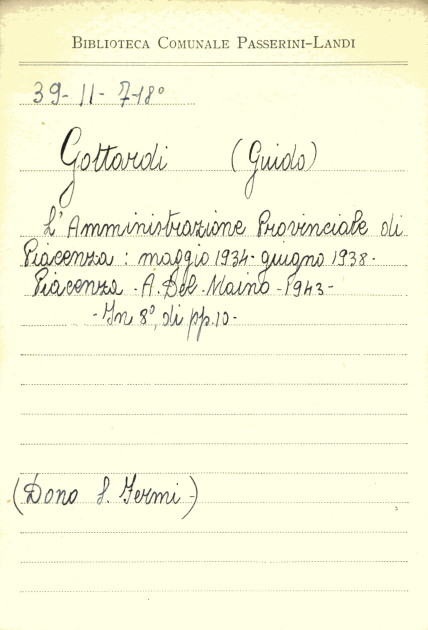 BIBLIOTECA COMUNALE PASSERINI-LANDI
39- 11- 7-18°
Gottardi (Guido)
L'Amministrazione Provinciale di
Piacenza : maggio 1934- giugno 1938-
Piacenza - A. Del - Maino - 1943 -
- In 8°, di pp. 10 -
(Dono S. Fermi -)